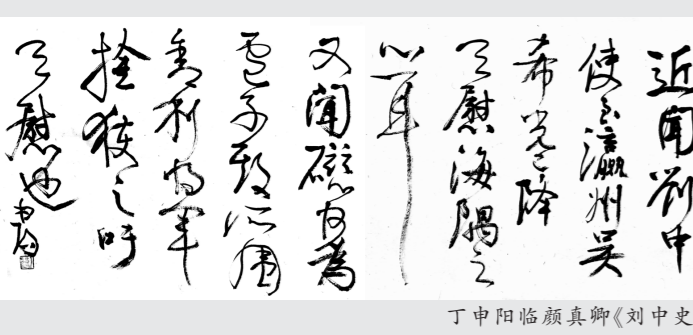 近聞劉中
使至瀛州吳
希光已降
足慰海隅之
心耳
又聞磁州為
盧子期所圍
舍利將軍
擒獲之吁
足慰也
丁申阳临颜真卿《刘中史